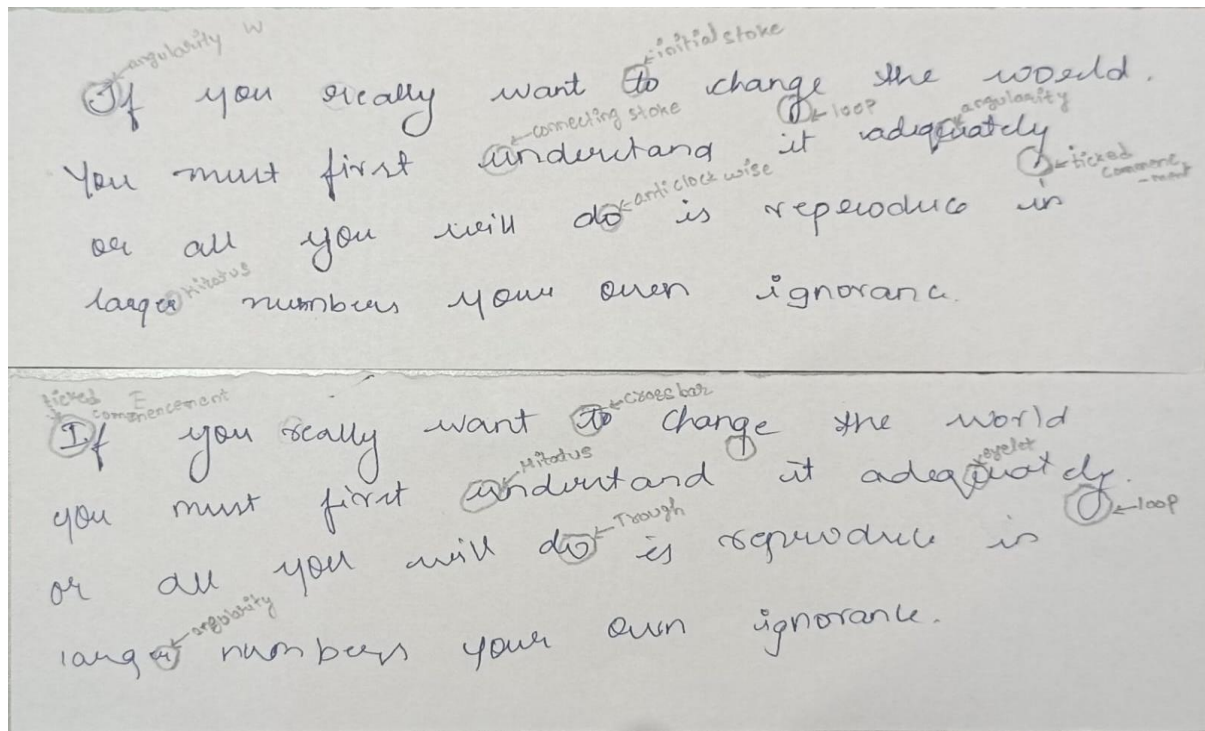 angularity W
initial stoke
If you really want to change the woeld.
connecting stoke
loop
angularity
You must first understand it adequately
anticlock wise
ticked
commenc
-ment
or all you will do is repeoduce in
Hitatus
larger numbers your own ignoranc.
ticked E
commencement
cross bar
If you really want to change the world
Hitatus
eyelet
you must first understand it adequately.
Trough
loop
or all you will do is reproduce in
angularity
larger numbers your own ignorance.